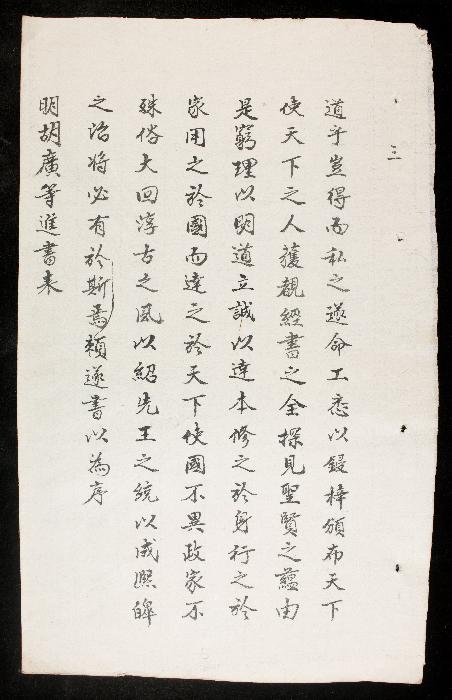 三
道乎豈得而私之遂命工悉以鋟梓頒布天下
使天下之人獲覩經書之全探見聖賢之蘊由
是窮理以明道立誠以達本修之於身行之於
家用之於國而達之於天下使國不異政家不
殊俗大回淳古之風以紹先王之統以成熙皥
之治將必有賴於斯焉遂書以為序
明胡廣等進書表